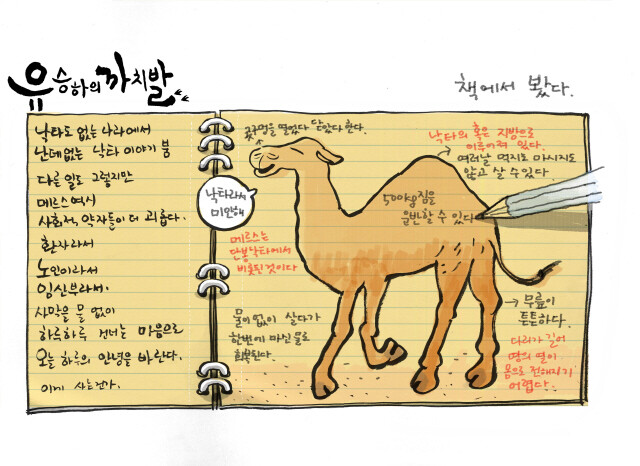 유승하의 까치발
책에서 봤다.
낙타도 없는 나라에서
난데없는 낙타 이야기 붐
다른 일도 그렇지만
메르스 역시
사회적 약자들이 더 괴롭다.
환자라서
노인이라서
임신부라서.
사막을 물 없이
하루하루 건너는 마음으로
오늘 하루의 안녕을 바란다.
이게 사는건가.
콧구멍을 열었다 닫았다 한다.
낙타라서
미안해
메르스는
단봉낙타에서
비롯된 것이다
낙타의 혹은 지방으로
이루어져 있다.
여러날 먹지도 마시지도
않고 살 수 있다.
500kg 짐을
운반할 수 있다
물이 없이 살다가
한번에 마신 물로
회복된다.
무릎이
튼튼하다.
다리가 길어
땅의 열이
몸으로 전해지기
어렵다.